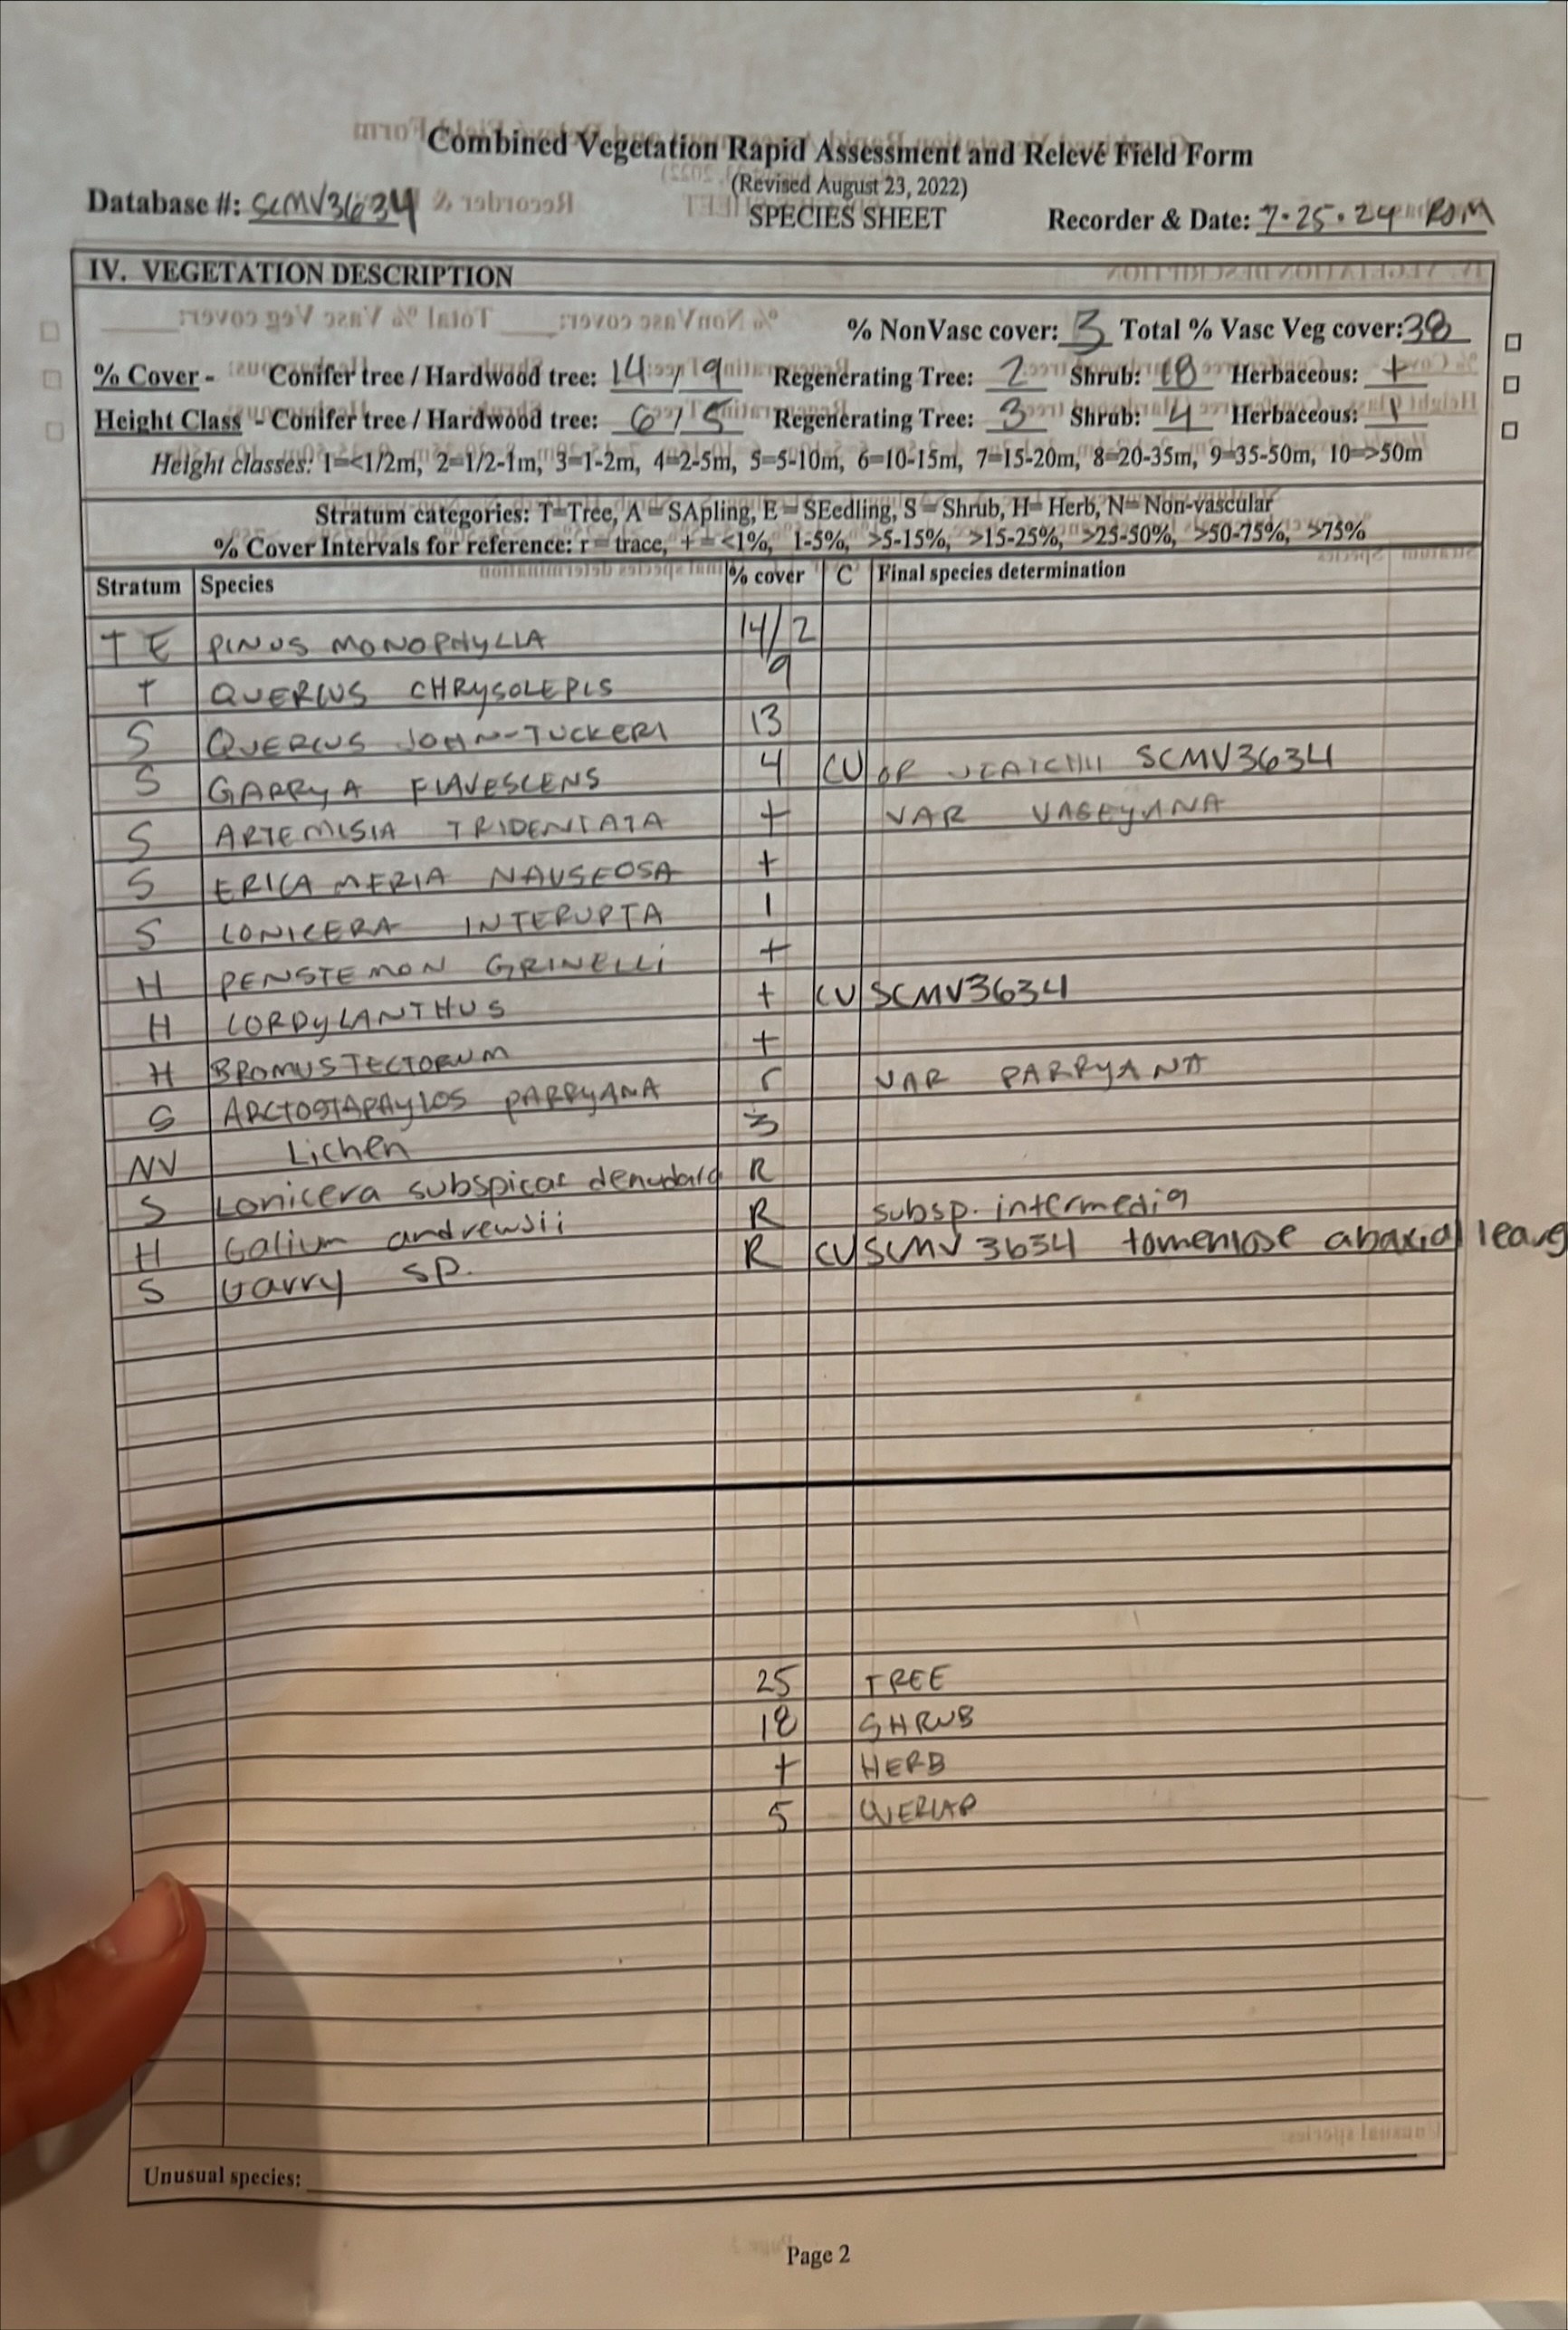 Combined Vegetation Rapid Assessment and Relevé Field Form
(Revised August 23, 2022)
Database #: SCMV3634 SPECIES SHEET Recorder & Date: 7.25.24 RJM
IV. VEGETATION DESCRIPTION
% NonVasc cover: 3 Total % Vasc Veg cover: 38
% Cover - Conifer tree / Hardwood tree: 14 / 9 Regenerating Tree: 2 Shrub: 18 Herbaceous: +
Height Class - Conifer tree / Hardwood tree: 6 / 5 Regenerating Tree: 3 Shrub: 4 Herbaceous: 1
Height classes: 1=<1/2m, 2=1/2-1m, 3=1-2m, 4=2-5m, 5=5-10m, 6=10-15m, 7=15-20m, 8=20-35m, 9=35-50m, 10=>50m
Stratum categories: T=Tree, A = SApling, E = SEedling, S = Shrub, H= Herb, N= Non-vascular
% Cover Intervals for reference: r = trace, + = <1%, 1-5%, >5-15%, >15-25%, >25-50%, >50-75%, >75%
Stratum Species % cover C Final species determination
T E PINUS MONOPHYLLA 14/2
T QUERCUS CHRYSOLEPIS 9
S QUERCUS JOHN-TUCKERI 13
S GARRYA FLAVESCENS 4 CU OR VEATCHII SCMV3634
S ARTEMISIA TRIDENTATA + VAR VASEYANA
S ERICAMERIA NAUSEOSA +
S LONICERA INTERUPTA 1
H PENSTEMON GRINELLI +
H CORDYLANTHUS + CU SCMV3634
H BROMUS TECTORUM +
S ARCTOSTAPHYLOS PARRYANA r VAR PARRYANA
NV Lichen 3
S Lonicera subspicat denudata R
H Galium andrewsii R subsp. intermedia
S Garry sp. R CU SCMV3634 tomentose abaxial leaves
25 TREE
18 SHRUB
+ HERB
5 OVERLAP
Unusual species:
Page 2